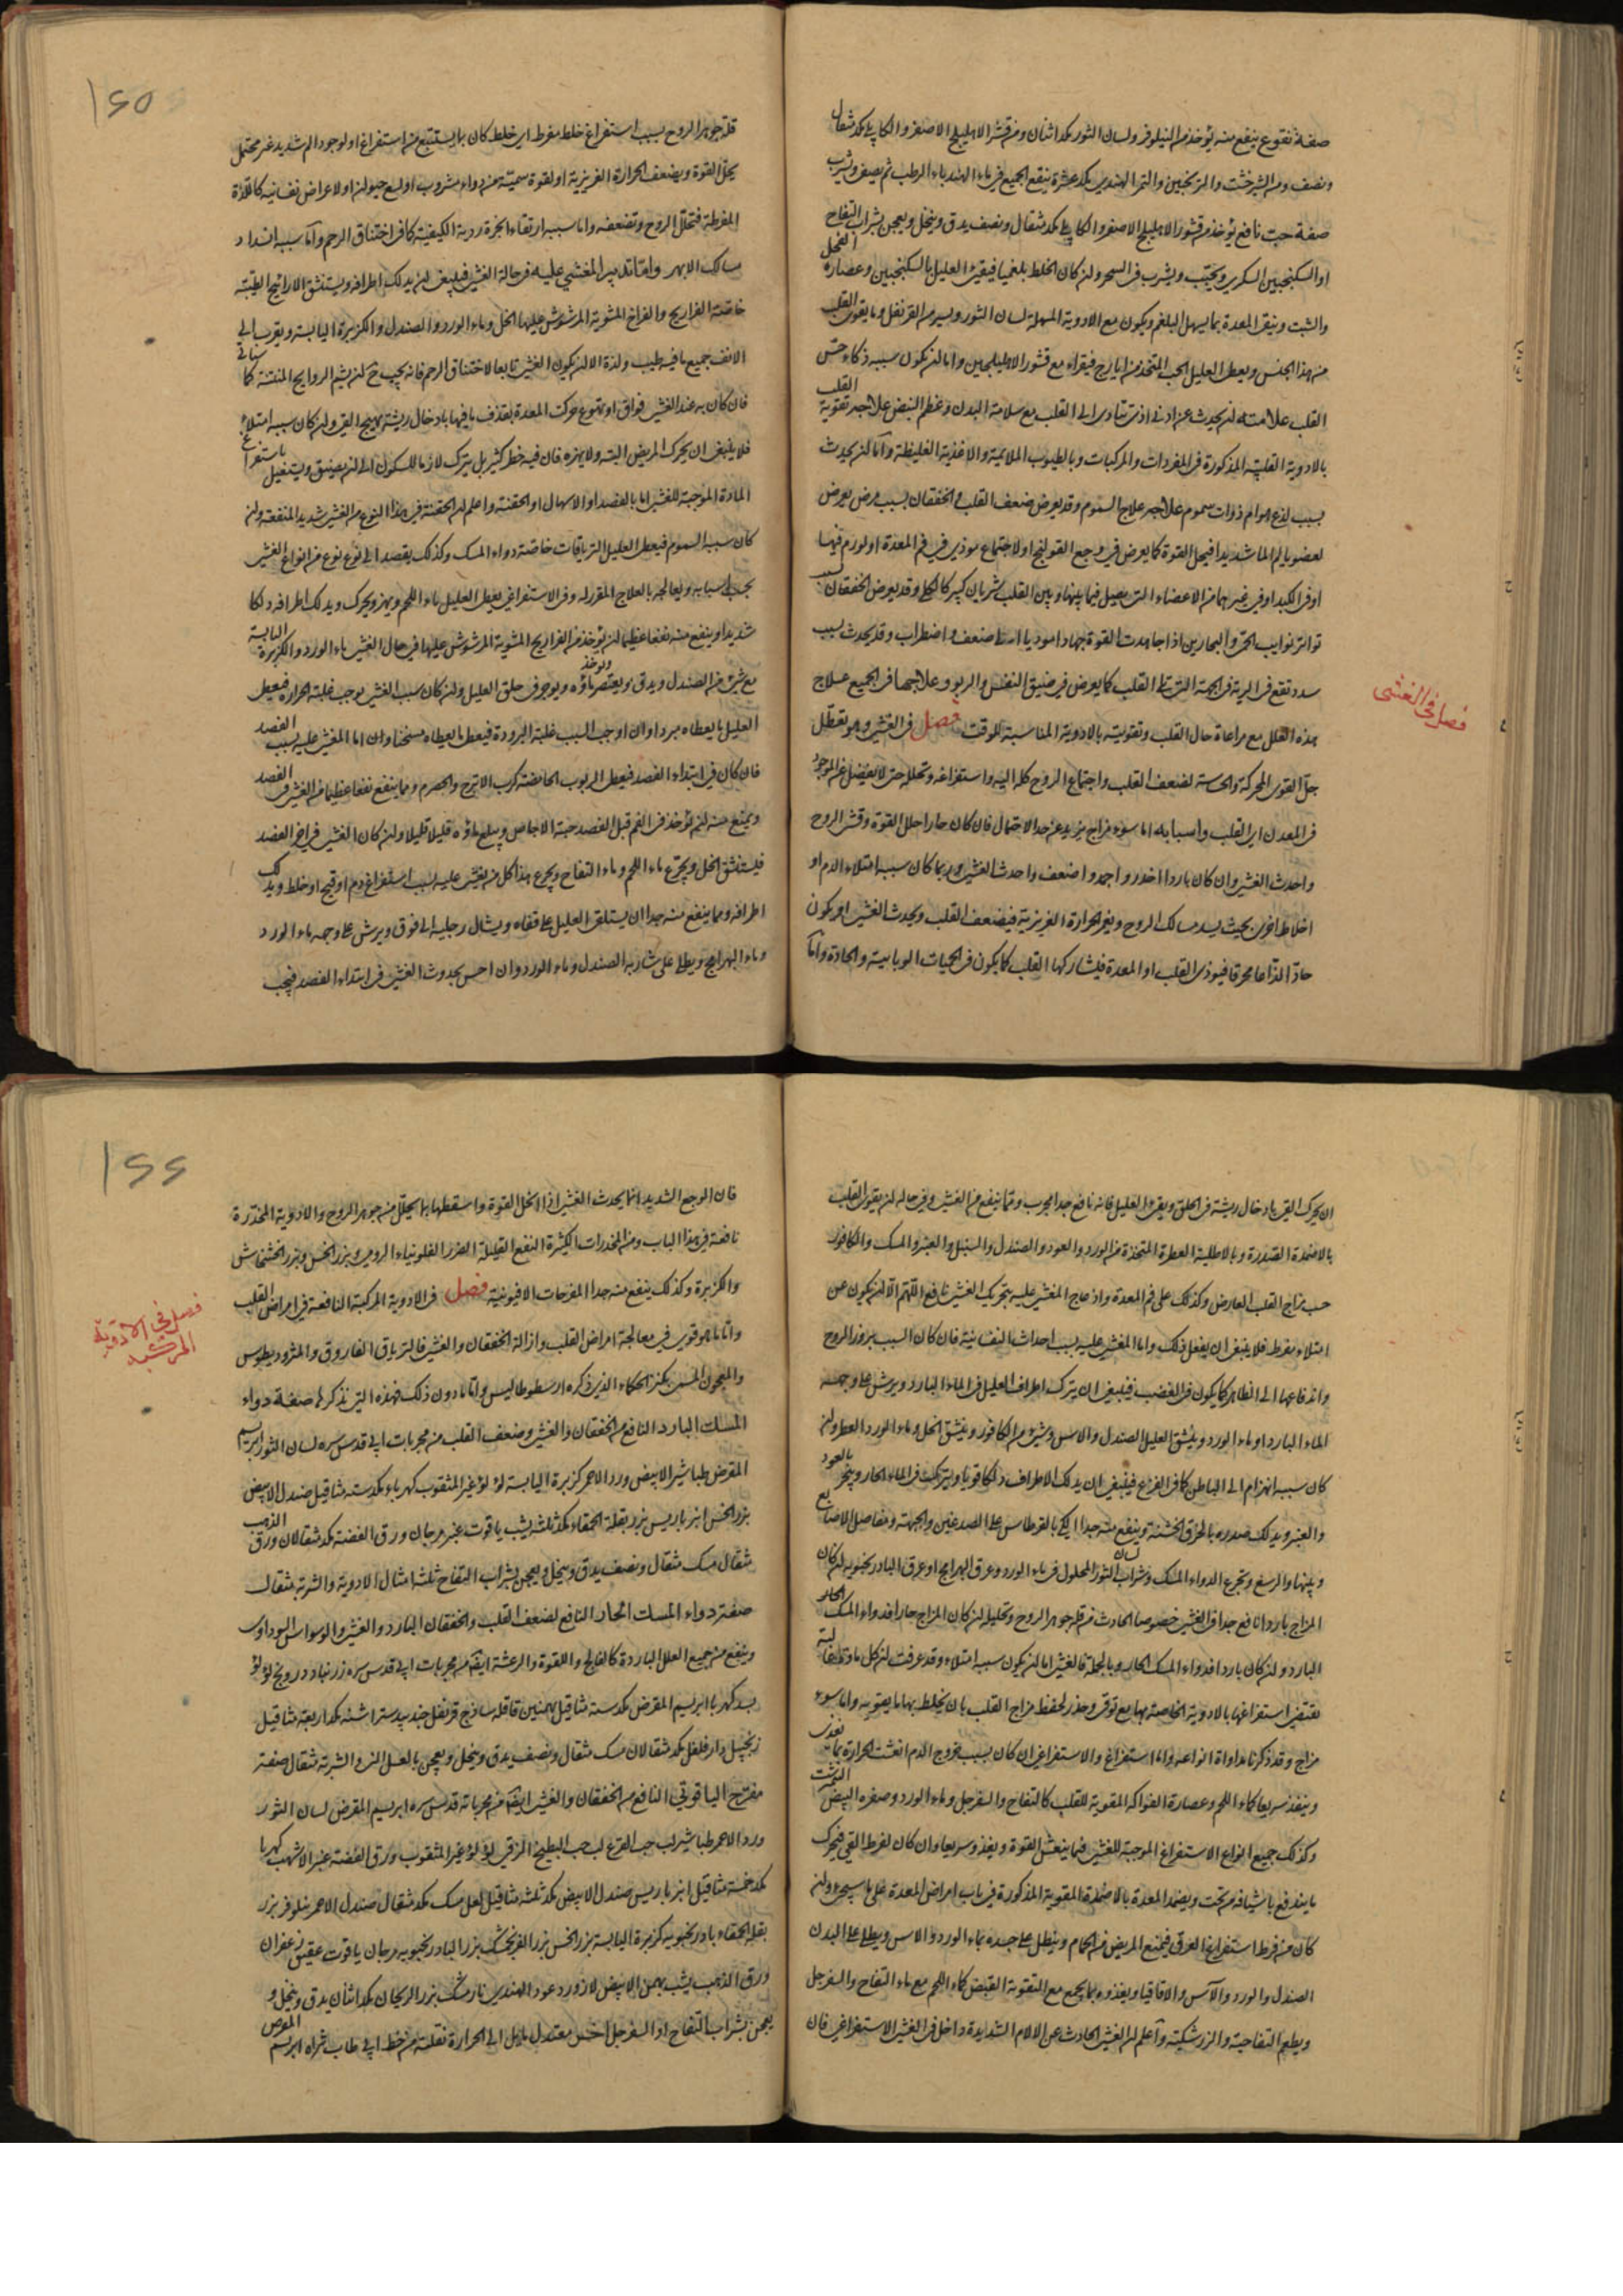 صفة نقوع ينفع منه يؤخذ من النيلوفر ولسان الثور مكد اثنان ومن قشر الاهليلج الاصفر والكابلي مكد مثقال
ونصف ومن الشيرخشت والترنجبين والتمر الهندي مكد عشرة ينقع الجميع في ماء الهندباء الرطب ثم يصفى ويشرب
صفة حب نافع يؤخذ من قشور الاهليلج الاصفر والكابلي مكد مثقال ونصف يدق وينخل ويعجن بشراب التفاح
او السكنجبين السكري ويحبب ويشرب في السحر ولن كان الخلط بلغميا فيقيء العليل بالسكنجبين وعصارة الفجل
والشبت وينقى المعدة بما يسهل البلغم ويكون مع الادوية المسهلة لسان الثور ويسير من القرنفل وما يقوى القلب
من هذا الجنس ويعطى العليل الحب المتخذ من ايارج فيقراء مع قشور الاهليلجين واما لن يكون سببه ذكاء حس
القلب علامته لن يحدث عن ادنى اذى يتادى الى القلب مع سلامة البدن وعظم النبض علاجه تقوية القلب
بالادوية القلبية المذكورة في المفردات والمركبات وبالطيوب الملائمة والاغذية الغليظة واما لن يحدث
بسبب لدغ هوام ذوات سموم علاجه علاج السموم وقد يعرض ضعف القلب والخفقان بسبب مرض يعرض
لعضو يالم الما شديدا فيحل القوة كما يعرض في وجع القولنج او لاجتماع موذى في فم المعدة او لورم فيها
او في الكبد او في غيرهما من الاعضاء التى يصل فيما بينها وبين القلب شريان كبير كالكلى وقد يعرض الخفقان بسبب
تواتر نوايب الحمى والبحارين اذا جاهدت القوة جهادا موديا الى ضعف واضطراب وقد يحدث بسبب
سدد تقع في الرية في الجهة التى تلي القلب كما يعرض في ضيق النفس والربو وعلاجهما في الجميع علاج
هذه العلل مع مراعاة حال القلب وتقويته بالادوية المناسبة للوقت فصل في الغشى وهو تعطل
فصل في الغشى
جل القوى المحركة والحساسة لضعف القلب واجتماع الروح كله اليه واستفراغه وتحلله حتى لا يفضل عن الموجود
في المعدن اى القلب واسبابه اما سوء مزاج يزيد عن حد الاحتمال فان كان حارا حلل القوة وفش الروح
واحدث الغشى وان كان باردا اخدر واجمد واضعف واحدث الغشى وربما كان سببه امتلاء الدم او
اخلاط اخرى بحيث يسد مسالك الروح ويغمر الحرارة الغريزية فيضعف القلب ويحدث الغشى او يكون
حادا لذاعا محرقا فيوذى القلب او المعدة فيشاركها القلب كما يكون في الحميات الوبايية والحادة واما
قلة جوهر الروح بسبب استفراغ خلط مفرط اى خلط كان بما يستتبع من استفراغ او لوجود الم شديد غير محتمل
يحل القوة ويضعف الحرارة الغريزية او لقوة سمية من دواء مشروب او لسع حيوان او لاعراض نفسانية كاللذة
المفرطة فتحلل الروح وتضعفه واما سببه ارتقاء ابخرة ردية الكيفية كما في اختناق الرحم واما سببه انسداد
مسالك الابهر واما تدبير المغشي عليه في حالة الغشى فليبغى لن يدلك اطرافه ويستنشق الاراييح الطيبة
خاصة الفراريج والفراخ المشوية المرشوش عليها الخل وماء الورد والصندل والكزبرة اليابسة ويقرب الى
الانف جميع ما فيه طيب ولذة الا لن يكون الغشى تابعا لاختناق الرحم فانه يجب ح لن يشم الروايح المنتنة كما سياتي
فان كان به عند الغشى فواق او تهوع حركت المعدة بقذف ما فيها بادخال ريشة يهيج القى ولن كان سببه امتلاء
فلا ينبغى ان يحرك المريض البتة ولا يهزه فان فيه خطر كثير بل يترك لازما للسكون الى لن يضيق ويتفيل باستفراغ
المادة الموجبة للغشى اما بالفصد او الاسهال او الحقنة واعلم لن الحقنة في هذا النوع من الغشى شديد المنفعة ولن
كان سببه السموم فيعطى العليل الترياقات خاصة دواء المسك وكذلك يقصد الى نوع نوع من انواع الغشى
بحسب اسبابه ويعالجه بالعلاج المقرر له وفي الاستفراغى يعطى العليل ماء اللحم ويهز ويحرك ويدلك اطرافه دلكا
شديدا وينفع منه نفعا عظيما لن يؤخذ من الفراريج المشوية المرشوش عليها في حال الغشى ماء الورد والكزبرة اليابسة
مع شىء من الصندل ويدق ويعتصر ماؤه ويوخذ ويوجر في حلق العليل ولن كان سبب الغشى يوجب غلبة الحرارة فيعطى
العليل ما يعطاه مبردا وان اوجب السبب غلبة البرودة فيعطى ما يعطاه مسخنا وان اما المغشى عليه بسبب الفصد
فان كان في ابتداء الفصد فيعطى الربوب الحامضة كرب الاترج والحصرم ومما ينفع نفعا عظيما من الغشى في الفصد
ويمنع منه لن يؤخذ في الفم قبل الفصد حبة الاجاص ويبلع ماؤه قليلا قليلا ولن كان الغشى في اخر الفصد
فليستنشق الخل ويجرع ماء اللحم وماء التفاح ويجرع هذا كل من يغشى عليه بسبب استفراغ دم او قيح او خلط ويدلك
اطرافه ومما ينفع منه جدا ان يستلقى العليل على قفاه ويشال رجليه الى فوق ويرش على وجهه ماء الورد
وماء البهرامج ويطلى على شاربه الصندل وماء الورد وان احس بحدوث الغشى في ابتداء الفصد فيجب
ان يحرك القى بادخال ريشة في الحلق ويقىء العليل فانه نافع جدا مجرب ومما ينفع من الغشى وفي حاله لن يقوى القلب
بالاضمدة المتخذة وبالاطلية العطرة المتخذة من الورد والعود والصندل والسنبل والعنبر والمسك والكافور
حسب مزاج القلب العارض وكذلك على فم المعدة واذ صاح المغشى عليه بتحريك الغشى نافع اللهم الا لن يكون عن
امتلاء مفرط فلا ينبغى ان يفعل ذلك واما المغشى عليه بسبب احداث النفسانية فان كان السبب بروز الروح
واندفاعها الى الظاهر كما يكون في الغضب فينبغى ان يترك اطراف العليل في الماء البارد ويرش على وجهه
الماء البارد او ماء الورد وينشق العليل الصندل والاس وشىء من الكافور وينشق الخل وماء الورد العطر ولن
كان سببه انهزام الى الباطن كما في الفزع فينبغى ان يدلك الاطراف دلكا قويا ويترك في الماء الحار ويبخر بالعود
والعنبر ويدلك صدره بالخرق الخشنة وينفع منه جدا الكي بالقرطاس على الصدغين والجبهة ومفاصل الاصابع
وبينها والرسغ وتجرع الدواء المسك وشراب لسان الثور المحلول في ماء الورد وعرق البهرامج او عرق البادرنجبويه لن كان
المزاج باردا نافع جدا في الغشى خصوصا الحادث من قلة جوهر الروح وتحليله لن كان المزاج حارا فدواء المسك
البارد ولن كان باردا فدواء المسك الحار وبالجملة فالغشى اما لن يكون سببه امتلاء وقد عرفت لن كل مادة غالبة
تقتضى استفراغها بالادوية الخاصة بها مع توقى وحذر لحفظ مزاج القلب بان يخلط بها ما يقويه واما سوء
مزاج وقد ذكرنا مداواة انواعه واما استفراغ والاستفراغى ان كان بسبب خروج الدم انعشت الحرارة بما يغذى
وينفذ سريعا كماء اللحم وعصارة الفواكه المقوية للقلب كالتفاح والسفرجل وماء الورد وصفره البيض النيمرشت
وكذلك جميع انواع الاستفراغ الموجبة للغشى فبما ينعش القوة ويغذو سريعا وان كان لفرط القى فيحرك
ما يندفع بالشيافة من تحت ويضمد المعدة بالاضمدة المقوية المذكورة في باب امراض المعدة على ما سيجىء ولن
كان من فرط استفراغ العرق فيمنع المريض من الحمام وينطل على جسده بماء الورد والاس ويطلى على البدن
الصندل والورد والآس والاقاقيا ويغذوه بما يجمع مع التقوية القبض كماء اللحم مع ماء التفاح والسفرجل
ويطعم التفاحية والزرشكية واعلم لن الغشى الحادث عن الالام الشديدة داخل في الغشى الاستفراغى فان
فان الوجع الشديد انما يحدث الغشى اذا انحل القوة واسقطها بما يحلل من جوهر الروح والادوية المخدرة
نافعة في هذا الباب ومن المخدرات الكثيرة النفع القليلة الضرر الفلونياء الرومى وبزر الخس وبزر الخشخاش
والكزبرة وكذلك ينفع منه جدا المفرحات الافيونية فصل في الادوية المركبة النافعة في امراض القلب
فصل في الادوية المركبة
واما ما هو قوى في معالجة امراض القلب وازالة الخفقان والغشى فالترياق الفاروق والمثروديطوس
والمعجون المسمى بكنز الحكماء الذى ذكره ارسطوطاليس واما ما دون ذلك فهذه التى نذكرها صفة دواء
المسك البارد النافع من الخفقان والغشى وضعف القلب من مجربات ابى قدس سره لسان الثور ابريسم
المقرض طباشير الابيض ورد الاحمر كزبرة اليابسة لؤلؤ غير المثقوب كهرباء مكد ستة مثاقيل صندل الابيض
بزر الخس انبرباريس بزر بقلة الحمقاء مكد ثلثة يشب ياقوت عنبر مرجان ورق الفضة مكد مثقالان ورق الذهب
مثقال مسك مثقال ونصف يدق وينخل ويعجن بشراب التفاح ثلثة امثال الادوية والشربة مثقال
صفة دواء المسك الحار النافع لضعف القلب والخفقان البارد والغشى والوسواس السوداوى
وينفع من جميع العلل الباردة كالفالج واللقوة والرعشة ايضا من مجربات ابى قدس سره زرنباد درونج لؤلؤ
بسد كهربا ابريسم المقرض مكد ستة مثاقيل بهمنين قاقلة ساذج قرنفل جندبيدستر اشنه مكد اربعة مثاقيل
زنجبيل دار فلفل مكد مثقالان مسك مثقال ونصف يدق وينخل ويعجن بالعسل الشربة مثقال صفة
مفرح الياقوتي النافع من الخفقان والغشى ايضا من مجرباته قدس سره ابريسم المقرض لسان الثور
ورد الاحمر طباشير لب حب القرع لب حب البطيخ المزقى لؤلؤ غير المثقوب ورق الفضة عنبر الاشهب كهربا
مكد خمسة مثاقيل انبرباريس صندل الابيض مكد ثلثة مثاقيل لعل مسك مكد مثقال صندل الاحمر نيلوفر بزر
بقلة الحمقاء بادرنجبويه كزبرة اليابسة بزر الخس بزر الفرنجمشك بزر البادرنجبويه مرجان ياقوت عقيق زعفران
ورق الذهب يشب بهمن الابيض لازورد عود الهندى نارمشك بزر الريحان مكد اثنان يدق وينخل و
يعجن بشراب التفاح او السفرجل اخرى معتدل مايل الى الحرارة نقلته من خط ابي طاب ثراه ابريسم المقرض